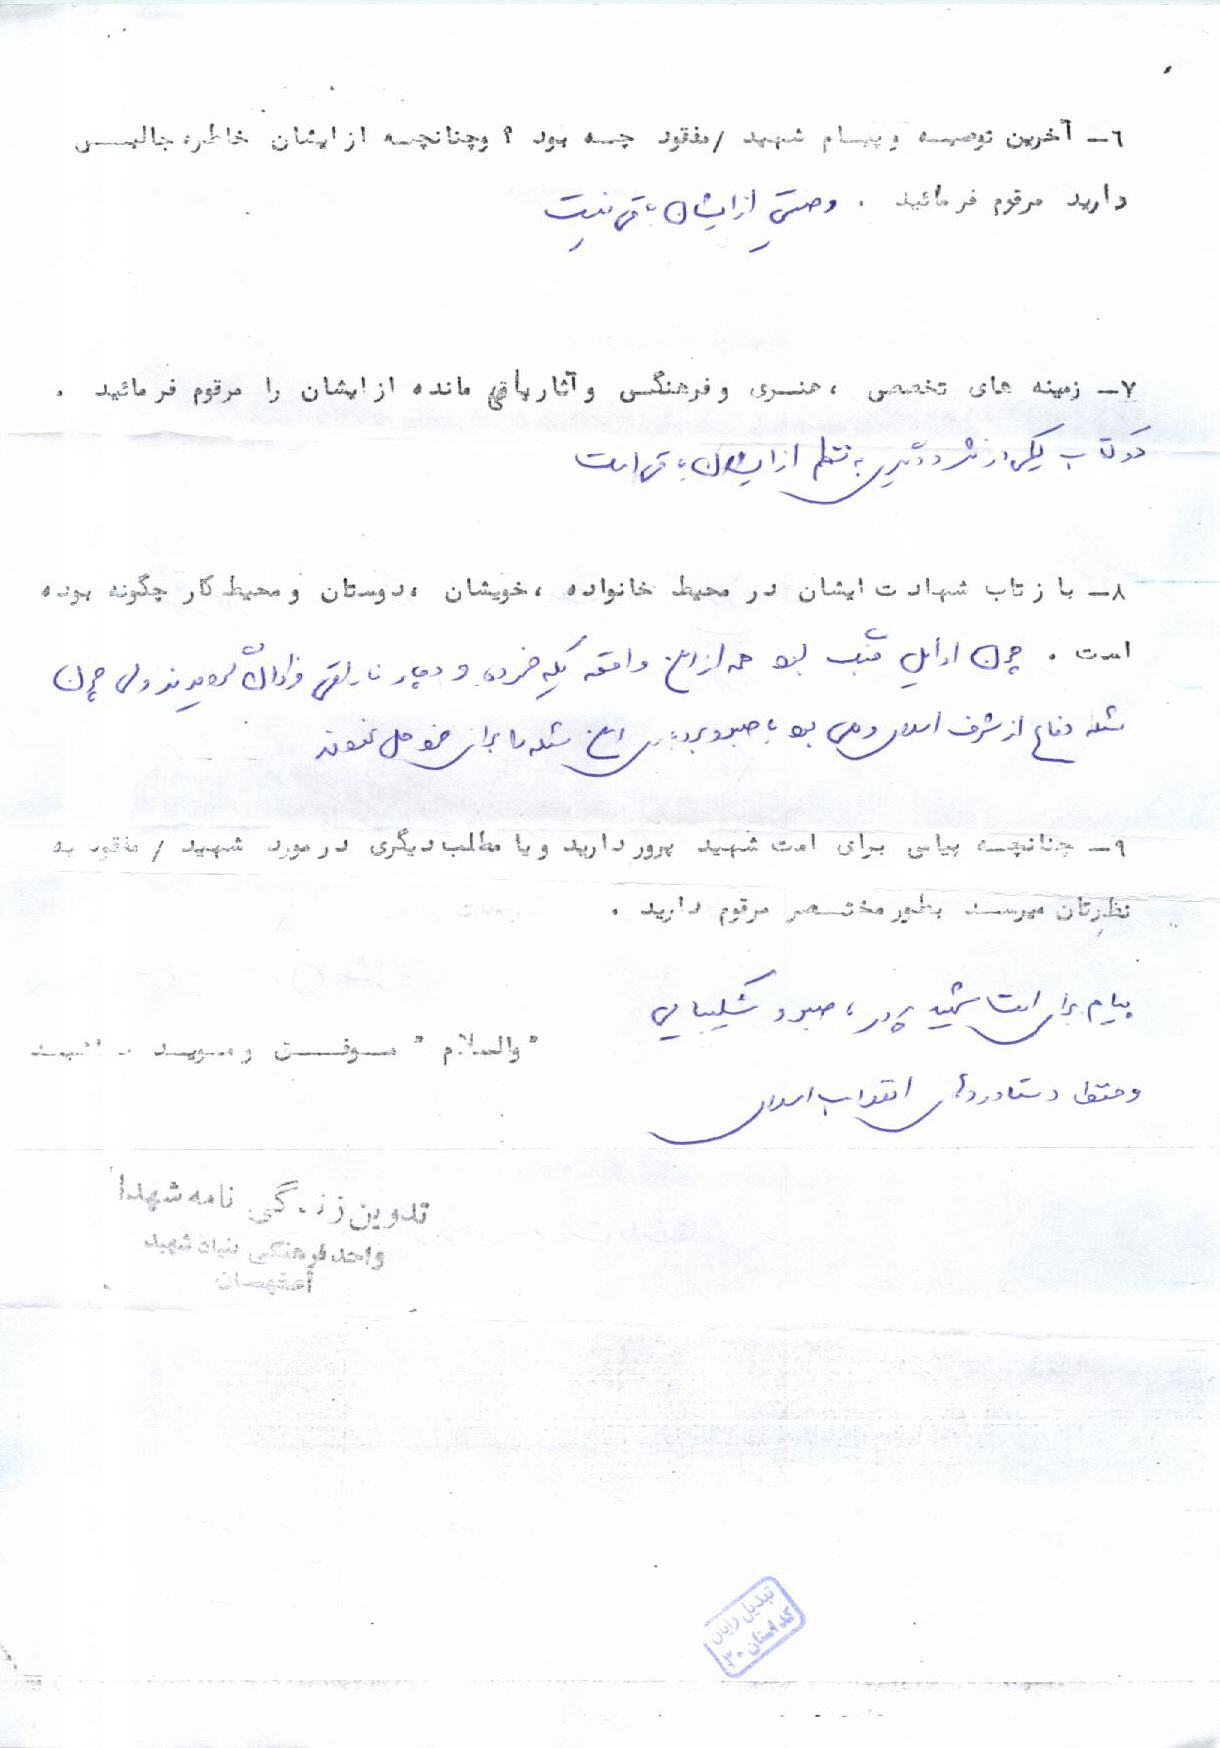 ٦ــ آخرین توصیه و پیام شهید /مفقود چه بود ؟ وچنانچه از ایشان خاطره جالبی
دارید مرقوم فرمائید . وصیتی از ایشان باقی نیست
۷ــ زمینه های تخصصی ، هنری و فرهنگی و آثار باقی مانده از ایشان را مرقوم فرمائید .
دو کتاب یکی در نثر و دیگری به نظم از ایشان باقی است
۸ــ بازتاب شهادت ایشان در محیط خانواده ، خویشان ، دوستان و محیط کار چگونه بوده
است . چون اوایل جنگ بود همه از این واقعه یکه خورده و دچار ناراحتی فراوان گردیدند ولی چون
مسئله دفاع از شرف اسلامی و ملی بود با صبر و بردباری این مسئله را برای خود حل نمودند
۹ــ چنانچه پیامی برای امت شهید پرور دارید و یا مطلب دیگری در مورد شهید / مفقود به
نظرتان میرسد بطور مختصر مرقوم دارید .
پیام برای امت شهید پرور ، صبر و شکیبایی
" والسلام " موفق و موید باشید
و حفظ دستاوردهای انقلاب اسلامی
تدوین زندگی نامه شهدا
واحد فرهنگی بنیاد شهید
اصفهان
تبدیل رایان
کد استان ۳۰